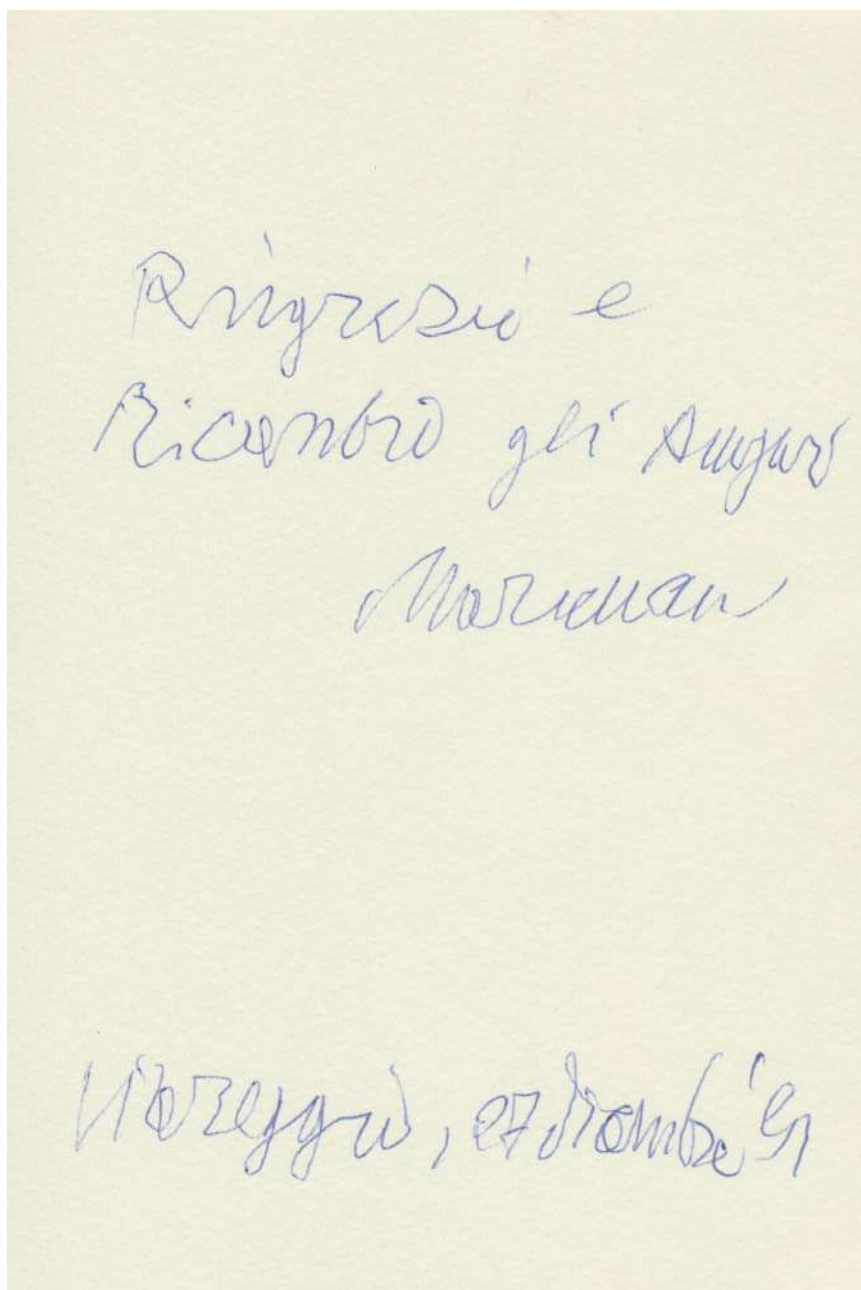 Ringrazio e
Ricambio gli Auguri
Viareggio, 27 dicembre '91